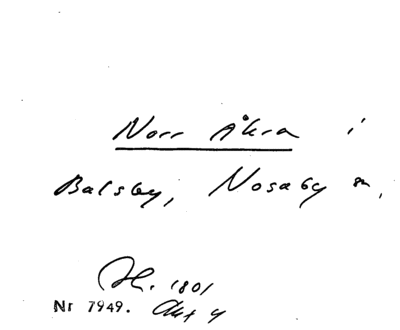 Norr Åkra i
Balsby, Nosaby sn,
Sk. 1801
Nr 7949. Akt 4